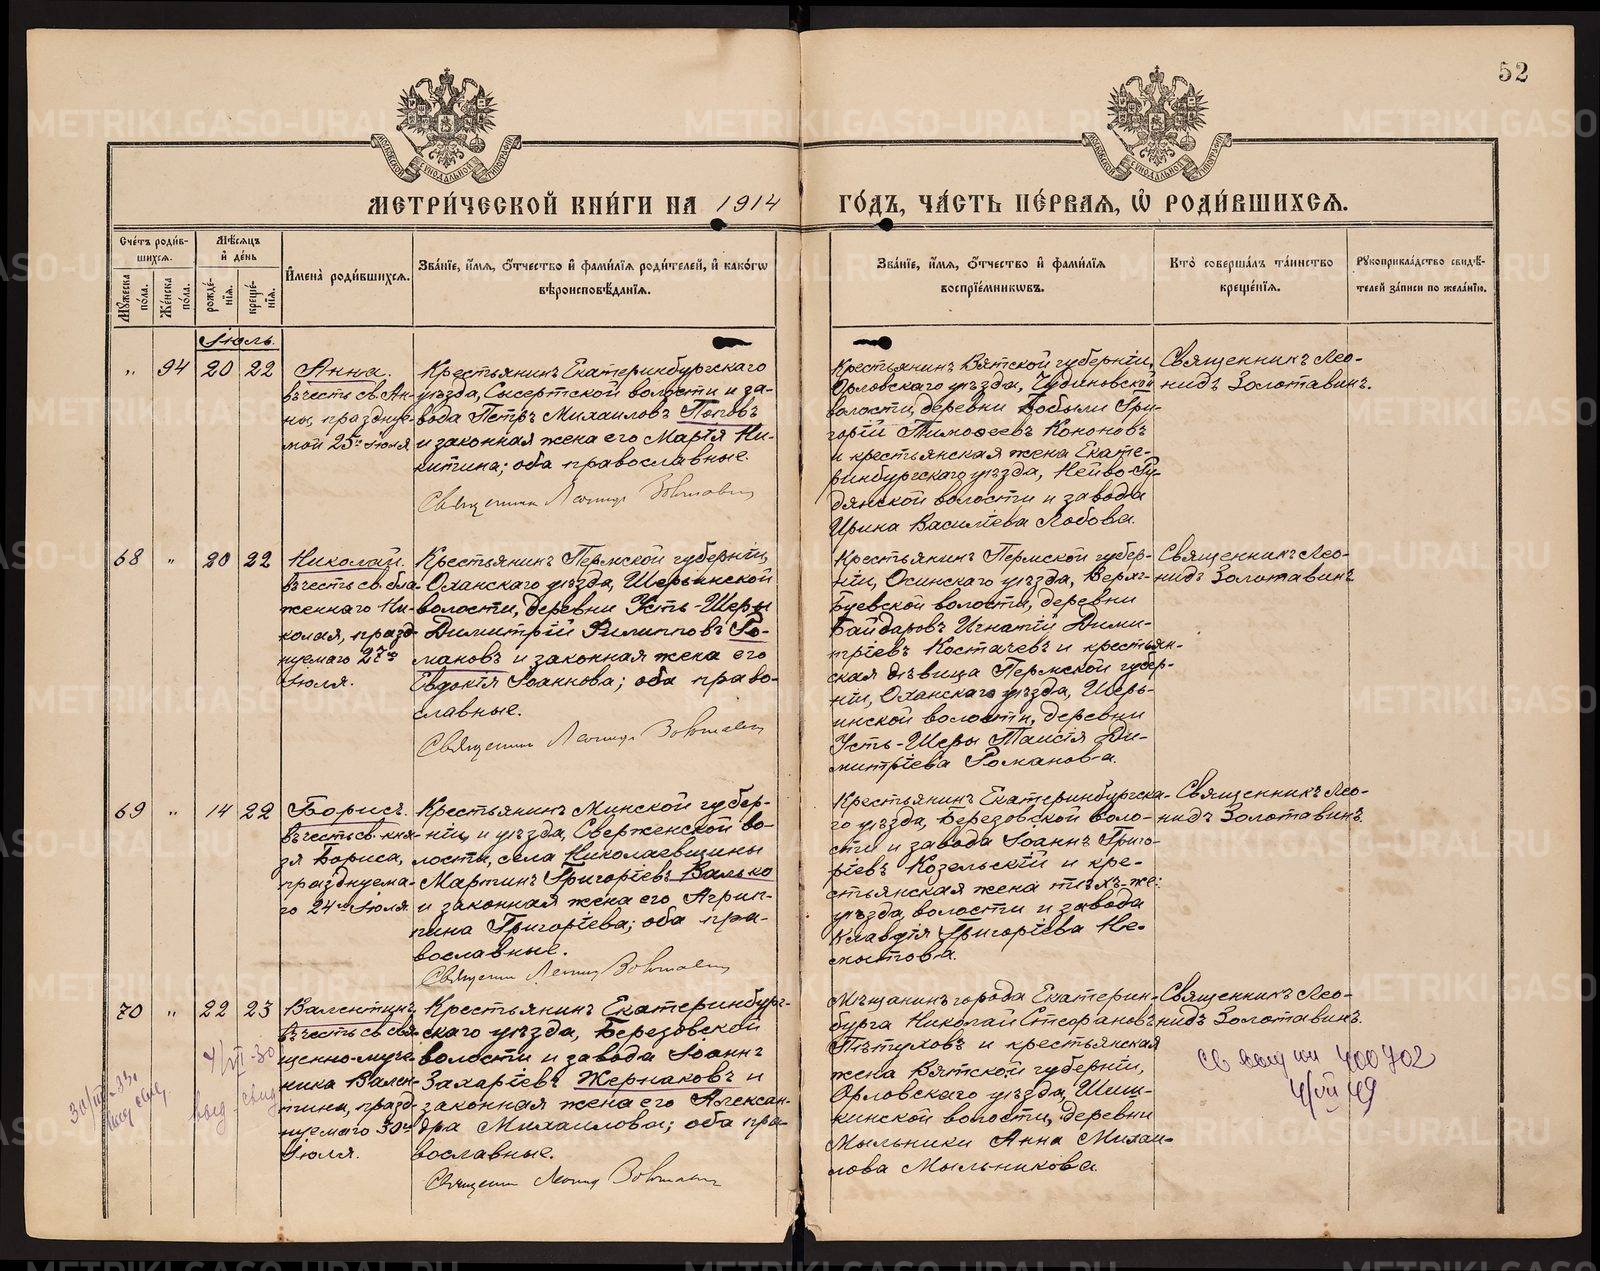 52
МЕТРИ́ЧЕСКОЙ КНИ́ГИ НА 1914 ГО́ДЪ, ЧА́СТЬ ПЕ́РВАЯ, Ѡ РОДИ́ВШИХСЯ.
Сче́тъ роди́в-
шихся.
Мѣ́сяцъ
и҆ де́нь
Мꙋ́жеска
по́ла.
Же́нска
по́ла.
рожде́-
нїѧ.
креще́-
нїѧ.
И҆мена̀ роди́вшихсѧ.
Зва́нїе, и҆́мѧ, ѻ҆́тчество и҆ фами́лїѧ роди́телей, и҆ како́гѡ
вѣроисповѣ́данїѧ.
Зва́нїе, и҆́мѧ, ѻ҆́тчество и҆ фами́лїѧ
воспрїе́мникѡвъ.
Кто̀ соверша́лъ та́инство
креще́нїѧ.
Рꙋкоприкла́дство свидѣ́-
телей за́писи по жела́нїю.
Іюль.
„ 94 20 22
Анна.
въ честь св. Ан-
ны, празднуе-
мой 25го Іюля
Крестьянинъ Екатеринбургскаго
уѣзда, Сысертской волости и за-
вода Петръ Михаиловъ Поповъ
и законная жена его Марія Ни-
китина; оба православные.
Священник Леонид Золотавин
Крестьянинъ Вятской губерніи,
Орловскаго уѣзда, Чудиновской
волости, деревни Бобыли Гри-
горій Тимофеевъ Кононовъ
и крестьянская жена Екате-
ринбургскаго уѣзда, Нейво-Ру-
дянской волости и завода
Ирина Василіева Лобова.
Священникъ Лео-
нидъ Золотавинъ.
68 „ 20 22
Николай.
въ честь св. бла-
женнаго Ни-
колая, празд-
нуемаго 27го
Іюля.
Крестьянинъ Пермской губерніи,
Оханскаго уѣзда, Шерьинской
волости, деревни Усть-Шеры
Димитрій Филипповъ Ро-
мановъ и законная жена его
Евдокія Іоаннова; оба право-
славные.
Священник Леонид Золотавин
Крестьянинъ Пермской губер-
ніи, Осинскаго уѣзда, Верхъ-
Буевской волости, деревни
Байдаровъ Игнатій Дими-
тріевъ Костачевъ и крестьян-
ская дѣвица Пермской губер-
ніи, Оханскаго уѣзда, Шерь-
инской волости, деревни
Усть-Шеры Таисія Ди-
митріева Романова.
Священникъ Лео-
нидъ Золотавинъ
69 „ 14 22
Борисъ.
въ честь св. кня-
зя Бориса,
празднуема-
го 24го Іюля.
Крестьянинъ Минской губер-
ніи, и уѣзда, Сверженской во-
лости, села Николаевщины
Мартинъ Григоріевъ Валько
и законная жена его Агрип-
пина Григоріева; оба пра-
вославные.
Священник Леонид Золотавин
Крестьянинъ Екатеринбургска-
го уѣзда, Березовской воло-
сти и завода Іоаннъ Григо-
ріевъ Козельскій и кре-
стьянская жена тѣхъ-же:
уѣзда, волости и завода
Клавдія Григоріева Не-
мытова.
Священникъ Лео-
нидъ Золотавинъ.
70 „ 22 23
Валентинъ
въ честь св. свя-
щенно-муче-
ника Вален-
тина, празд-
нуемаго 30го
Іюля.
Крестьянинъ Екатеринбург-
скаго уѣзда, Березовской
волости и завода Іоаннъ
Захаріевъ Жернаковъ и
законная жена его Алексан-
дра Михаилова; оба пра-
вославные.
Священник Леонид Золотавин
Мѣщанинъ города Екатерин-
бурга Николай Стефановъ
Пѣтуховъ и крестьянская
жена Вятской губерніи,
Орловскаго уѣзда, Шеш-
кинской волости, деревни
Мыльники Анна Михаи-
лова Мыльникова.
Священникъ Лео-
нидъ Золотавинъ.
400702
4/VII 49